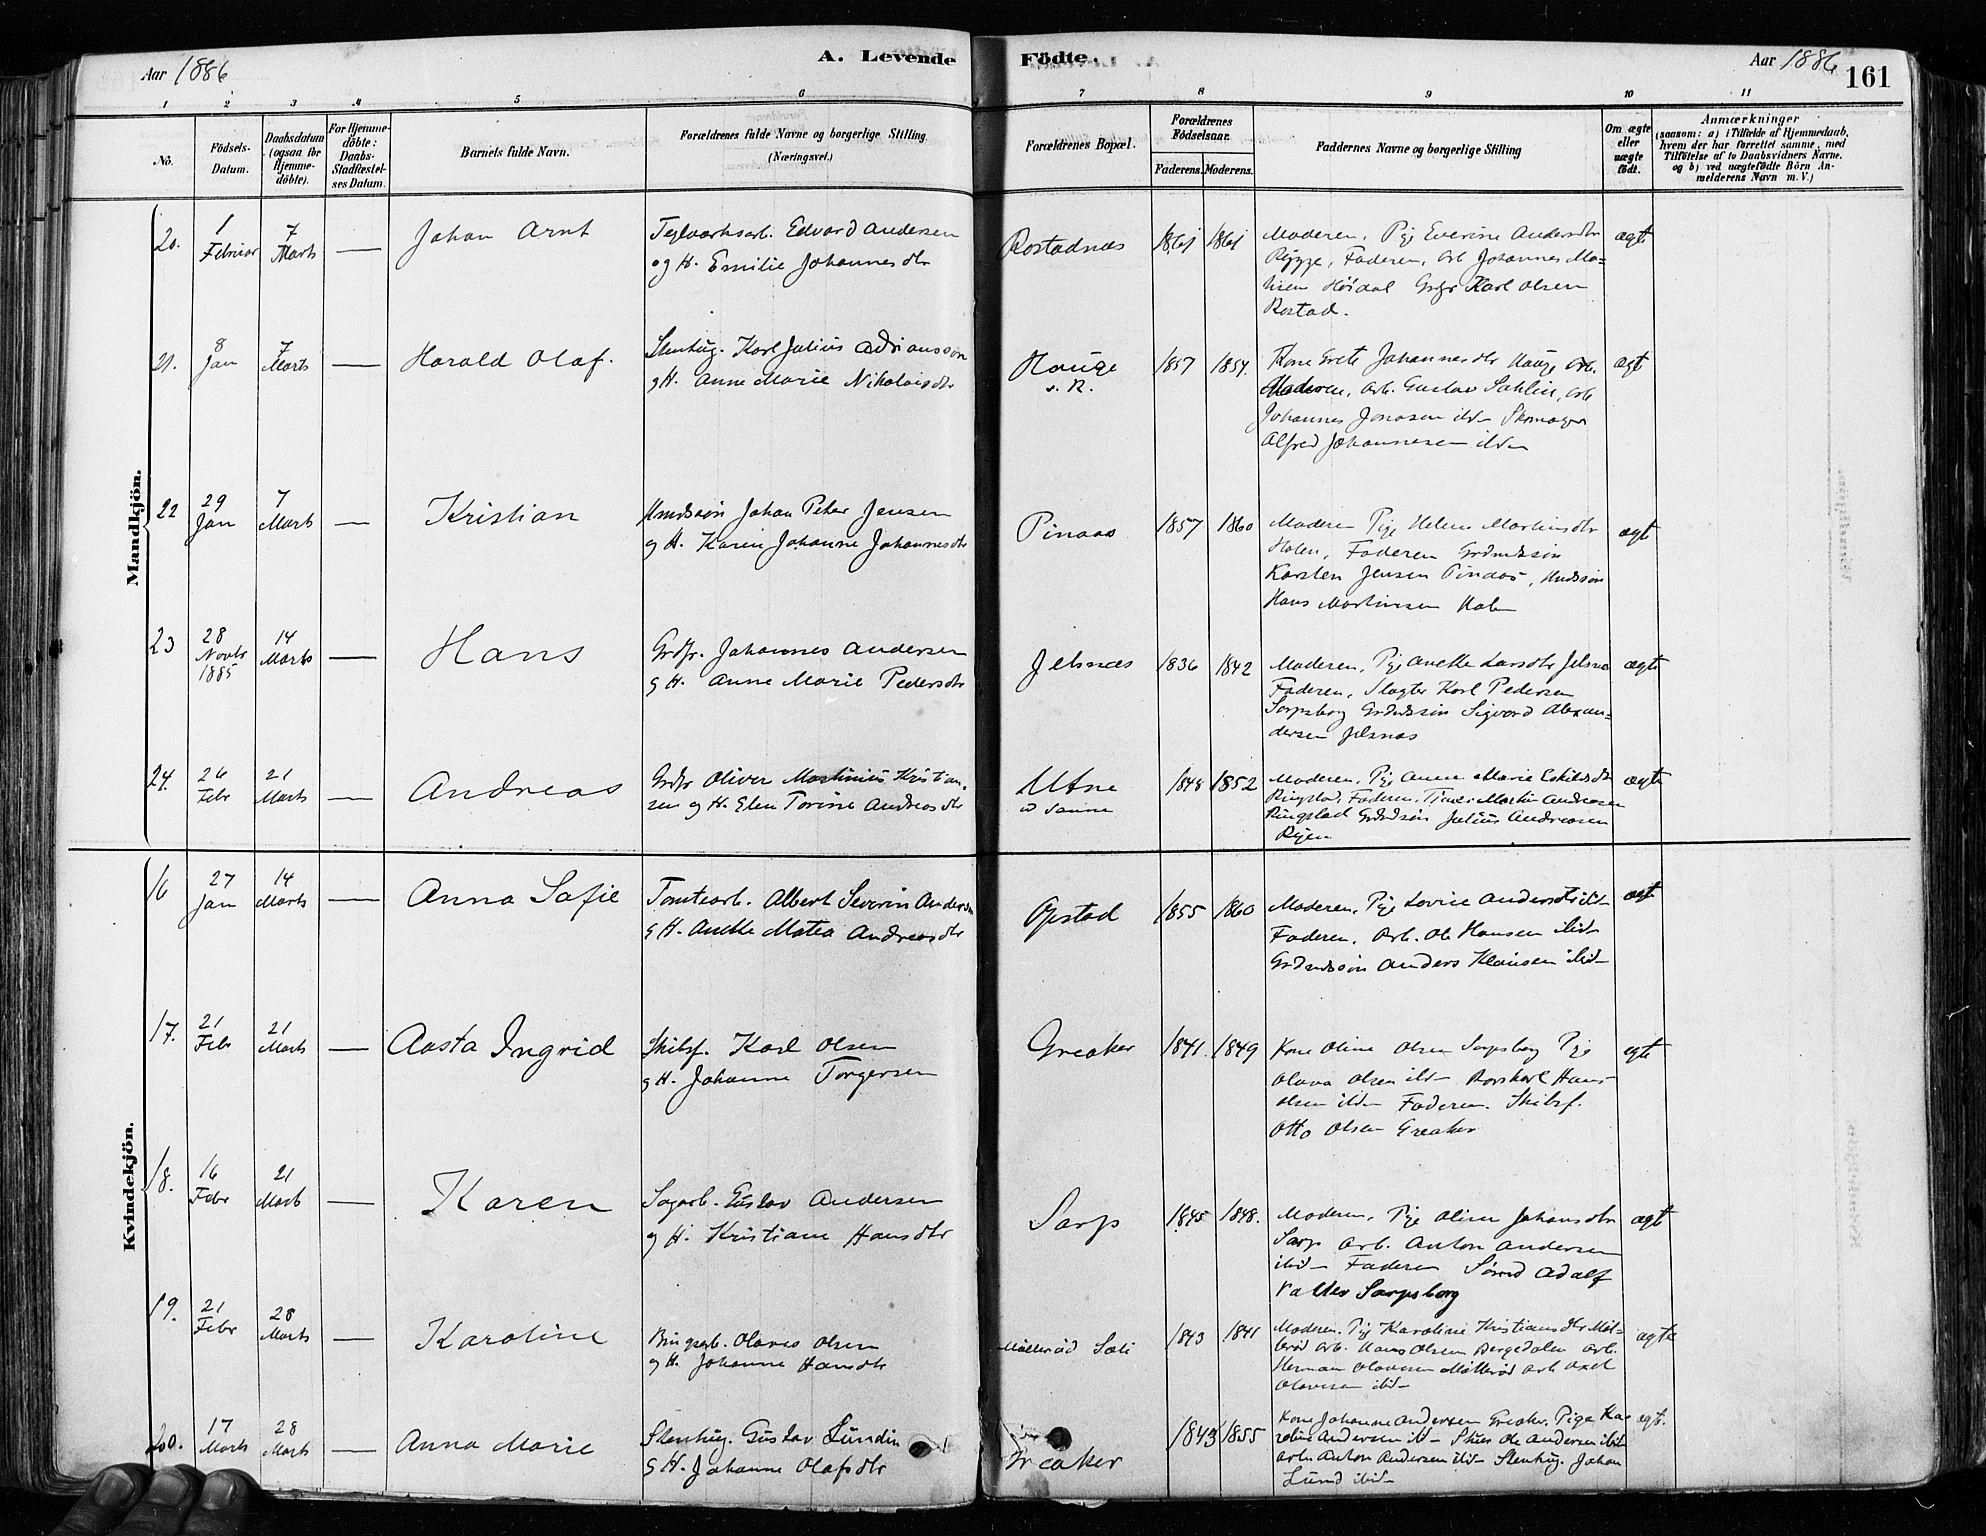 Aar 1886
A. Levende
Födte.
Aar 1886
161
1 2 3 4 5 6 7 8 9 10 11
No.
Födsels-
Datum.
Daabsdatum
(ogsaa for
Hjemme-
döbte).
For Hjemme-
döbte:
Daabs-
Stadfæstel-
ses Datum.
Barnets fulde Navn.
Forældrenes fulde Navne og borgerlige Stilling
(Næringsvei.)
Forældrenes Bopæl.
Forældrenes
Födselsaar.
Faderens. Moderens.
Faddernes Navne og borgerlige Stilling
Om ægte
eller
uægte
födt.
Anmærkninger
(saasom: a) i Tilfælde af Hjemmedaab,
hvem der har forrettet samme, med
Tilföielse af to Daabsvidners Navne.
og b) ved uægtefödte Börn An-
melderens Navn m. V.)
Mandkjön.
20. 1 Februar 7 Marts — Johan Arnt
Teglværksarb. Edvard Andersen
og H. Emilie Johannesdtr
Rostadnæs 1861 1861
Moderen, Pige Everine Andersdtr
Rygge, Faderen, Arb Johannes Ma-
thisen Høidal Grdbr Karl Olsen
Rostad.
ægte
21. 8 Jan 7 Marts — Harald Olaf.
Stenhug. Karl Julius Adriansson
og H. Anne Marie Nikolaisdtr
Hauge
s. R.
1857 1854.
Kone Grete Johannesdtr Hauge Arb.
Moderen, Arb. Gustav Sahlin, Arb
Johannes Jonasen ibid- Skomager
Alfred Johannesen ibid-
ægt
22 29 Jan 7 Marts — Kristian
Husmdssøn Johan Peter Jensen
og H. Karen Johanne Johannesdtr
Pinaas 1857 1860
Moderen Pige Helene Martinsdtr
Holen, Faderen Grdmdssøn
Karsten Jensen Pinaas, Husmdssøn
Hans Martinsen Holen
ægt
23 28 Novbr 1885 14 Marts — Hans
Grdbr. Johannes Andersen
og H. Anne Marie Pedersdtr
Jelsnæs 1836 1842
Moderen, Pige Anette Larsdtr Jelsnæs
Faderen, Slagter Karl Pedersen
Sarpsborg Grdmdssøn Sigvard Alexan-
dersen Jelsnæs
ægte
24. 26 Febr 21 Marts — Andreas
Grdbr Oliver Martinius Kristian-
sen og H. Elen Torine Andreasdtr
Utne
v Sanne
1848 1852
Moderen, Pige Anne Marie Eskilsdtr
Ringstad, Faderen, Tjener Martin Andreasen
Ringstad Grdmdssøn Julius Andreasen
Ryen
ægte
Kvindekjön.
16 27 Jan 14 Marts — Anna Sofie
Tomtearb. Albert Severin Andersen
og H. Anette Matea Andreasdtr
Opstad 1855 1860
Moderen, Pige Lovise Andersdtr ibid-
Faderen, Arb. Ole Hansen ibid-
Grdmdssøn Anders Klausen ibid-
ægte
17. 21 Febr 21 Marts — Aasta Ingrid
Skibsf. Karl Olsen
og H. Johanne Torgersen
Greaker 1841. 1849
Kone Oline Olsen Sarpsborg Pige
Olava Olsen ibid- Karl Hans
Olsen ibid- Faderen. Skibsf.
Otto Olsen Greaker
egte
18. 16 Febr 21 Marts — Karen
Sagarb. Gustav Andersen
og H. Kristiane Hansdtr
Sarp 1845 1848.
Moderen, Pige Oline Johansdtr
Sarp Arb. Anton Andersen
ibid- Faderen Adolf
Valter Sarpsborg
ægte
19. 21 Febr 28 Marts — Karoline
Brugsarb. Olaves Olsen
og H. Johanne Hansdtr
Møllerød Soli 1843 1841
Moderen, Pige Karoline Kristiansdtr Møl-
lerød Arb. Hans Olsen Bergedalen Arb.
Herman Olavesen Møllerød Arb Axel
Olavesen ibid-
ægte
20. 17 Marts 28 Marts — Anna Marie
Stenhug. Gustav Lundin
og H. Johanne Olafsdtr
Greaker 1843 1855
Kone Johanne Andersen Greaker, Pige Ka-
roline Andersen ibid- Skier Ole Andersen ibid
Arb. Anton Andersen ibid- Stenhug. Johan
Lund ibid-
egt.